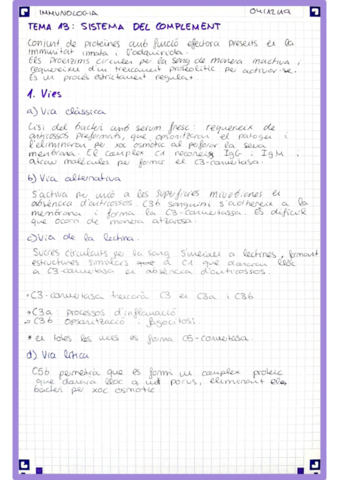 IMMUNOLOGIA 04/12/19
TEMA 13: SISTEMA DEL COMPLEMENT
Conjunt de proteïnes amb funció efectora presents en la
immunitat innata i l'adquirida.
Els proenzims circulen per la sang de manera inactiva i
requereixen d'un trencament proteolític per activar-se.
És un procés estrictament regulat.
1. Vies
a) Via clàssica
Lisi del bacteri amb sèrum fresc: requereix de
anticossos preformats, que opsonitzaran el patogen i
l'eliminaran per xoc osmòtic al perforar la seva
membrana. El complex C1 reconeix IgG i IgM i
atreu molècules per formar el C3-convertasa.
b) Via alternativa
S'activa per unió a les superfícies microbianes en
absència d'anticossos. C3b sanguini s'adhereix a la
membrana i forma la C3-convertasa. És difícil
que ocorri de manera atzarosa.
c) Via de la lectina
Sucres circulants per la sang s'uneixen a lectines, formant
estructures similars a C1 que donaran lloc
a C3-convertasa en absència d'anticossos.
• C3-convertasa trencarà C3 en C3a i C3b
• C3a processos d'inflamació
• C3b Opsonització i fagocitosi
* en totes les vies es forma C5-convertasa.
d) Via lítica
C5b permetrà que es formi un complex proteic
que donarà lloc a un porus, eliminant els
bacteris per xoc osmòtic